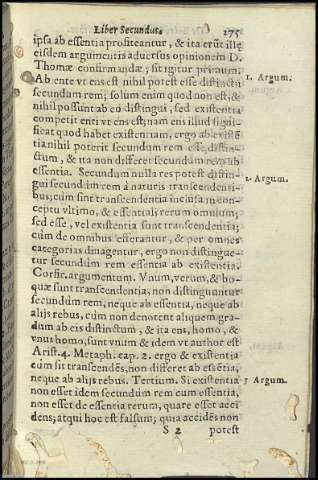 Liber Secundus. 275
ipsa ab essentia profiteantur, & ita erūt illę
eisdem argumentis aduersus opinionem D.
Thomæ confirmandæ; sit igitur primum.
Ab ente vt ens est nihil potest esse distinctū
secundum rem; solum enim quod non est, &
nihil possunt ab eo distingui, sed existentia
competit enti vt ens est; nam ens illud signi-
ficat quod habet existentiam, ergo ab existē
tia nihil poterit secundum rem esse distin-
ctum, & ita non differet secundum rem ab
essentia. Secundum nulla res potest distin-
gui secundum rem à naturis transcendenti-
bus; cum sint transcendentia inclusa in con-
ceptu vltimo, & essentialis rerum omnium;
sed esse, vel existentia sunt transcendentia;
cùm de omnibus efferantur, & per omnes
categorias diuagentur, ergo non distingue-
tur secundum rem essentia ab existentia.
Confir. argumentum. Vnum, verum, & bo-
quæ sunt transcendentia, non distinguuntur
secundùm rem, neque ab essentia, neque ab
alijs rebus, cùm non denotent aliquem gra-
dum ab eis distinctum, & ita ens, homo, &
vnus homo, sunt vnum & idem vt author est
Arist. 4. Metaph. cap. 2. ergo & existentia
cùm sit transcendēs, non differet ab essētia,
neque ab alijs rebus. Tertium. Si existentia
non esset idem secundum rem cum essentia,
non esset de essentia rerum, quare esset acci
dens; atqui hoc est falsum; quia accidēs non
S 2 potest
1. Argum.
2. Argum.
3 Argum.